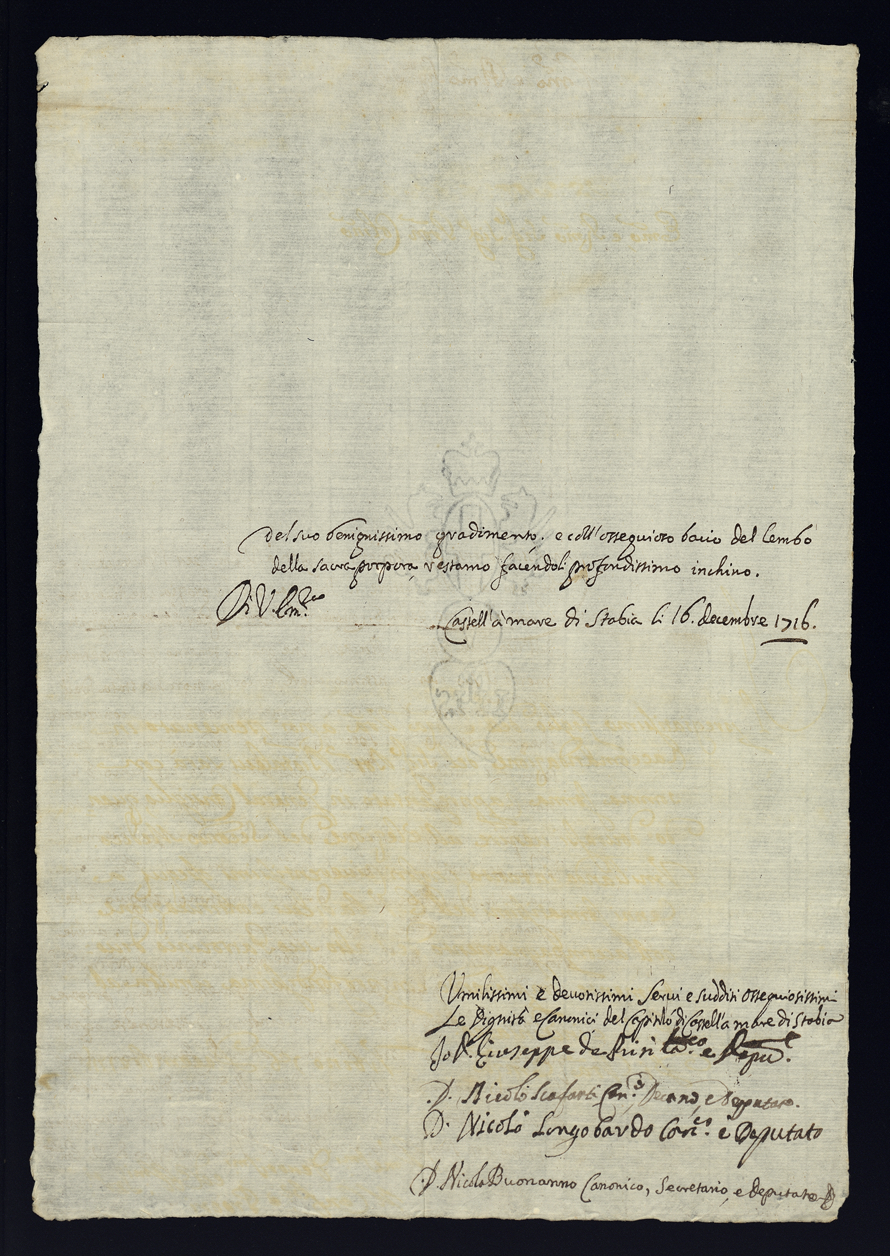 del suo benignissimo gradimento. e coll'ossequioso bacio del lembo
della sacra porpora, restamo facendoli profondissimo inchino.
Di V. Em.
Castell'à mare di Stabia li 16. decembre 1716.
Umilissimi e devotissimi Servi e sudditi ossequiosissimi
Le Dignità e Canonici del Capitolo di Castell'a mare di Stabia
Io D. Giuseppe de e Depu.
D. Nicolò Scafarti Can.º Decano, e Deputato.
D. Nicolò Longobardo Can.co e Deputato
D. Nicola Buonanno Canonico, Secretario, e deputato